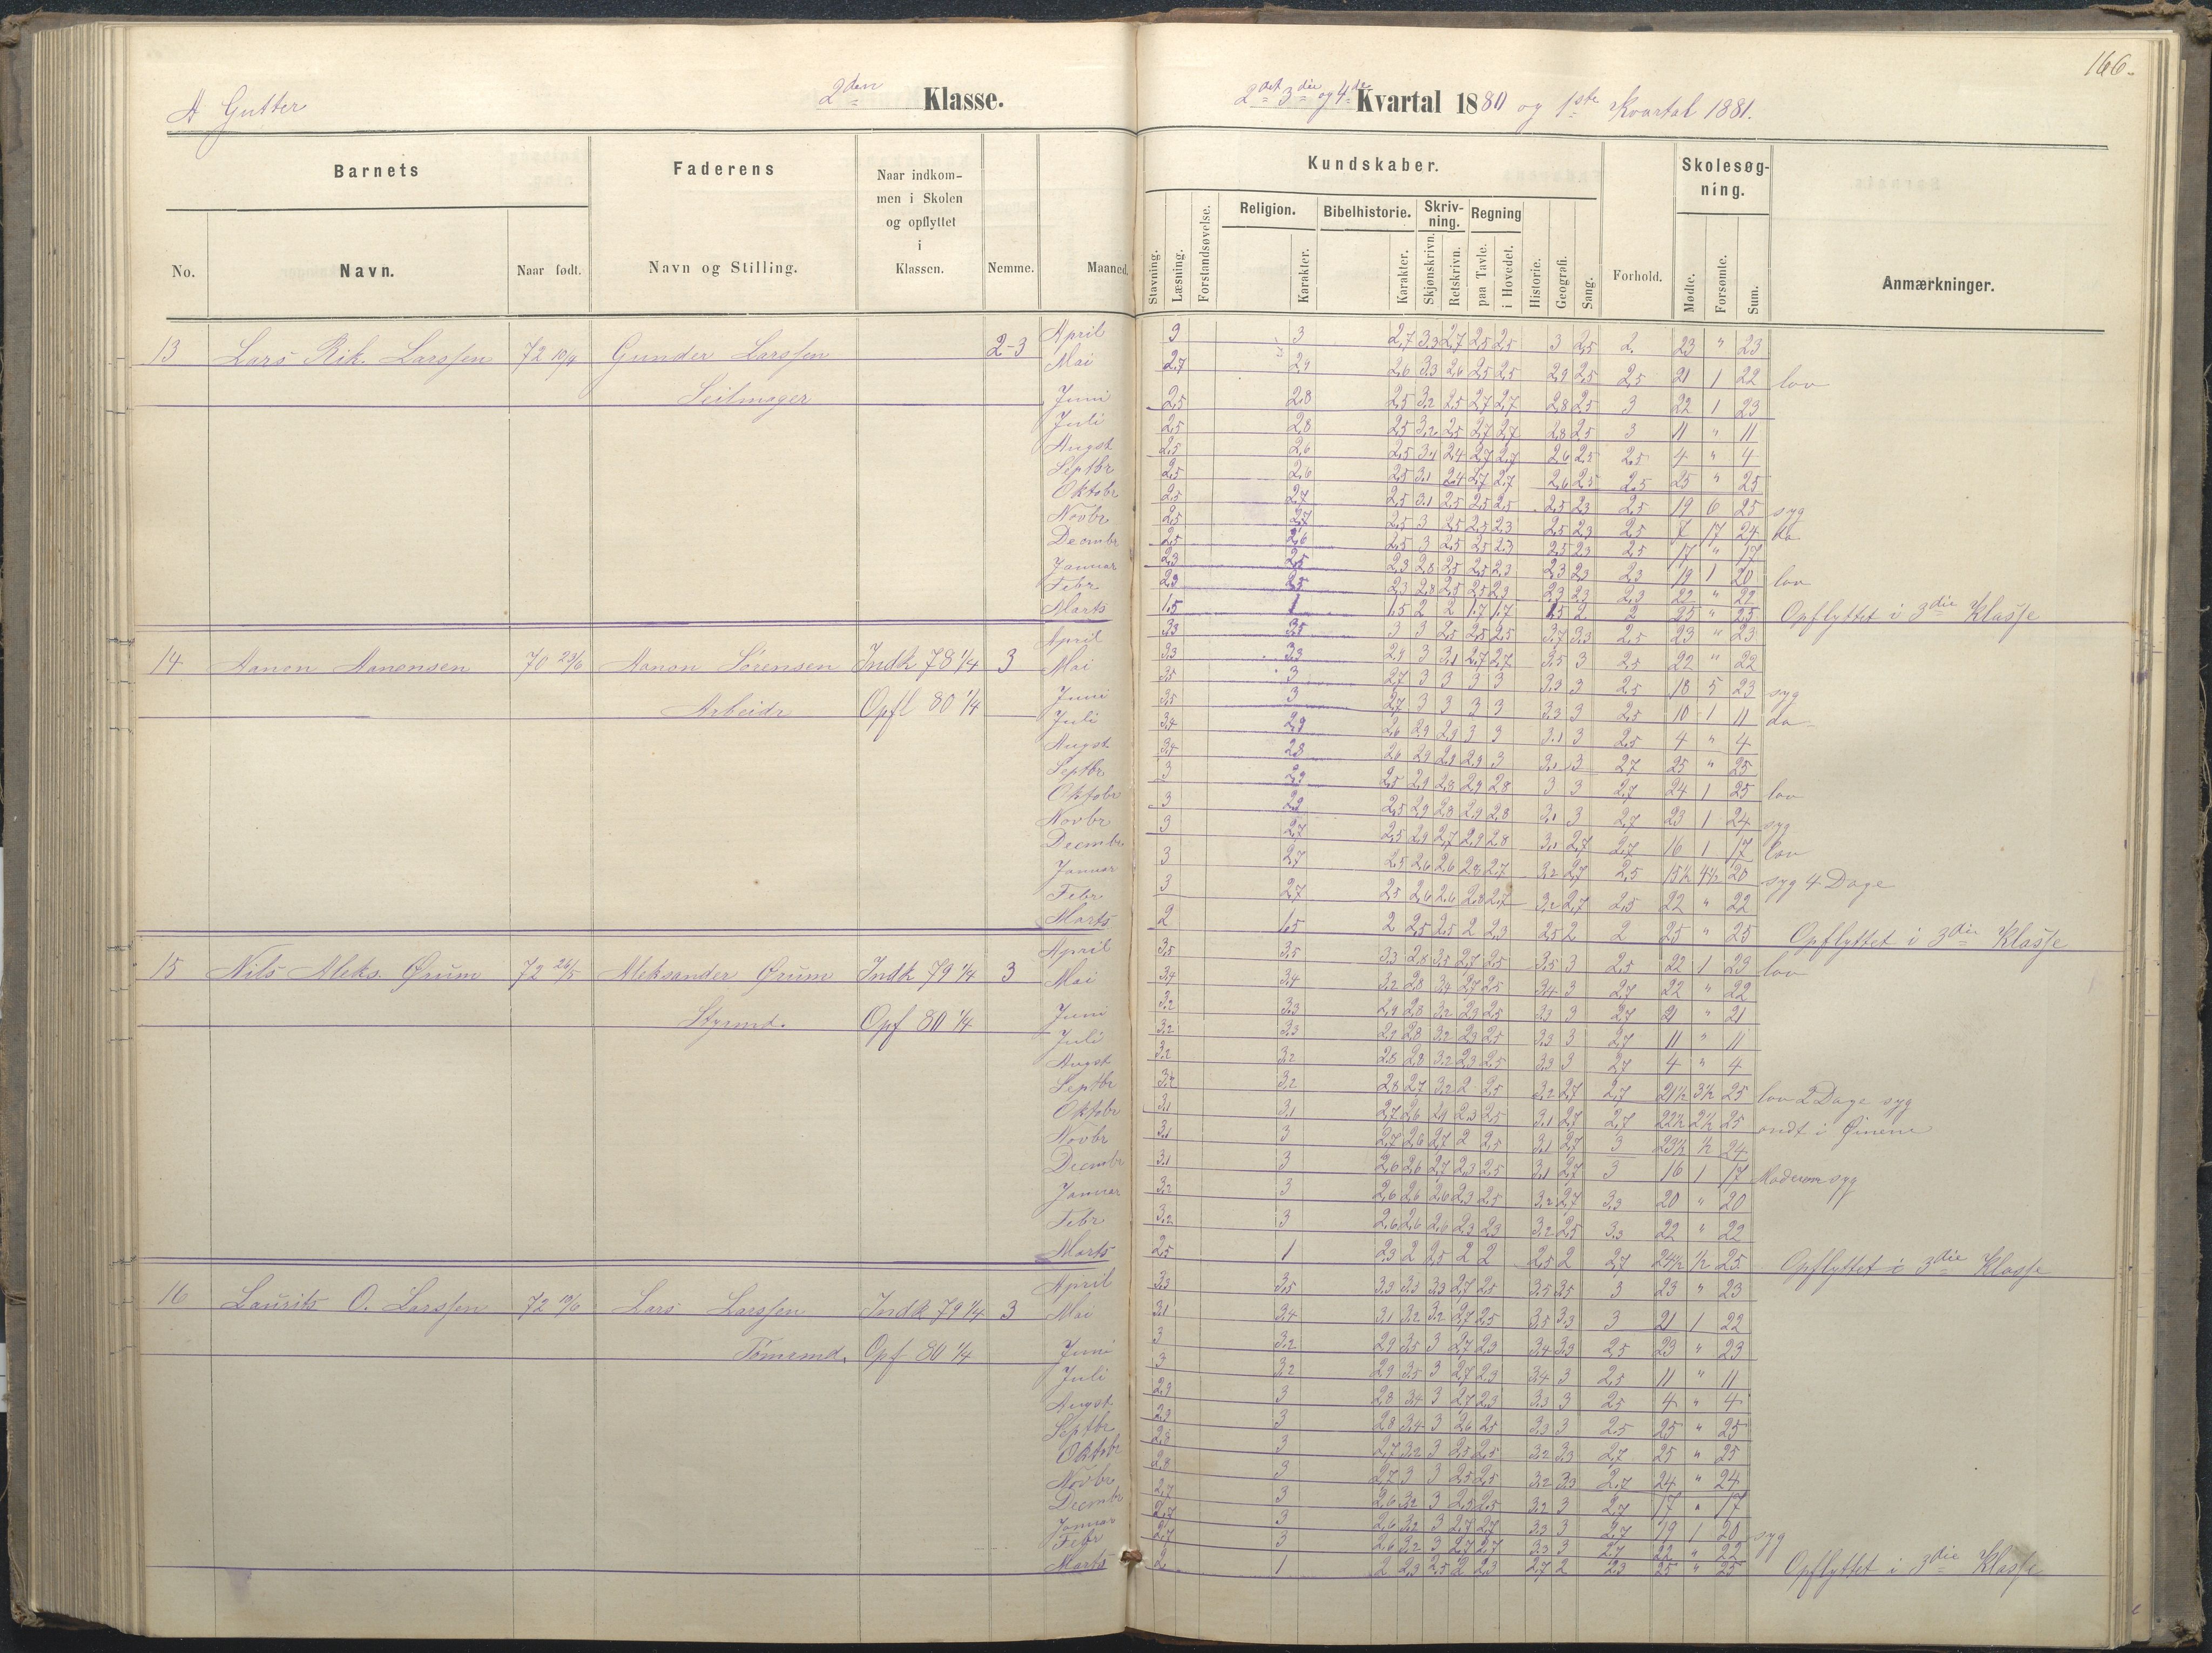 166.
A Gutter
2den Klasse.
2det 3die og 4de Kvartal 1880 og 1ste Kvartal 1881.
Barnets
Faderens
Naar indkommen i Skolen og opflyttet i Klassen.
Nemme.
Maaned.
No.
Navn.
Naar født.
Navn og Stilling.
Kundskaber.
Stavning.
Læsning.
Forstandsøvelse.
Religion.
Karakter.
Bibelhistorie.
Karakter.
Skrivning.
Skjønskrivn.
Retskrivn.
Regning
paa Tavle.
i Hovedet.
Historie.
Geografi.
Sang.
Forhold.
Skolesøgning.
Mødte.
Forsømte.
Sum.
Anmærkninger.
13 Lars Rik. Larssen 72 10/4 Gunder Larssen 2-3
Seilmager
April 3 3 2,7 3,3 2,7 2,5 2,5 3 2,5 2. 23 " 23
Mai 2,7 2,9 2,6 3,3 2,6 2,5 2,5 2,9 2,5 2,5 21 1 22 lov
Juni 2,5 2,8 2,5 3,2 2,5 2,7 2,7 2,8 2,5 3 22 1 23
Juli 2,5 2,8 2,5 3,2 2,5 2,7 2,7 2,8 2,5 3 11 " 11
Augst 2,5 2,6 2,5 3,1 2,4 2,7 2,7 2,6 2,5 2,5 4 " 4
Septbr 2,5 2,6 2,5 3,1 2,4 2,7 2,7 2,6 2,5 2,5 25 " 25
Oktobr 2,5 2,7 2,5 3,1 2,5 2,5 2,5 2,5 2,3 2,5 19 6 25 syg
Novbr 2,5 2,7 2,5 3 2,5 2,5 2,3 2,5 2,3 2,5 7 17 24 do
Decembr 2,5 2,6 2,5 3 2,5 2,5 2,3 2,5 2,3 2,5 17 " 17
Januar 2,3 2,5 2,3 2,8 2,5 2,5 2,3 2,3 2,3 2,3 19 1 20 lov
Febr 2,3 2,5 2,3 2,8 2,5 2,5 2,3 2,3 2,3 2,3 22 " 22
Marts 1,5 1 1,5 2 2 1,7 1,7 1,5 2 2 25 " 25 Opflyttet i 3die Klasse
14 Aanon Aanonsen 70 23/6 Aanon Sørensen Indk 78 1/4 3
Arbeidr Opfl 80 1/4
April 3,3 3,5 3 3 2,5 2,5 2,5 3,7 3,3 2,5 23 " 23
Mai 3,3 3,3 2,9 3 3,1 2,7 2,7 3,5 3 2,5 22 " 22
Juni 3,5 3 2,7 3 3 3 3 3,3 3 2,5 18 5 23 syg
Juli 3,5 3 2,7 3 3 3 3 3,3 3 2,5 10 1 11 do
Augst. 3,4 2,9 2,6 2,9 2,9 3 3 3,1 3 2,5 4 " 4
Septbr 3,4 2,8 2,6 2,9 2,9 2,9 3 3,1 3 2,7 25 " 25
Oktobr 3 2,9 2,5 2,9 2,8 2,9 2,8 3 3 2,7 24 1 25 lov
Novbr 3 2,9 2,5 2,9 2,8 2,9 2,8 3,1 3 2,7 23 1 24 syg
Decembr 3 2,7 2,5 2,9 2,7 2,9 2,8 3,1 2,7 2,7 16 1 17 lov
Januar 3 2,7 2,5 2,6 2,6 2,8 2,7 3,2 2,7 2,5 15½ 4½ 20 syg 4 Dage
Febr 3 2,7 2,5 2,6 2,6 2,8 2,7 3,2 2,7 2,5 22 " 22
Marts 2 1,5 2 2,5 2,5 2 2,3 2,5 2 2 25 " 25 Opflyttet i 3die Klasse
15 Nils Aleks. Ørum 72 26/5 Aleksander Ørum Indk 79 1/4 3
Styrmd. Opf 80 1/4
April 3,5 3,5 3,3 2,8 3,5 2,7 2,5 3,5 3 2,5 22 1 23 lov
Mai 3,4 3,4 3,2 2,8 3,4 2,7 2,5 3,4 3 2,7 22 " 22
Juni 3,2 3,3 2,9 2,8 3,2 2,3 2,5 3,3 3 2,7 21 " 21
Juli 3,2 3,3 2,9 2,8 3,2 2,3 2,5 3,3 3 2,7 11 " 11
Augst 3,2 3,2 2,8 2,8 3,2 2,3 2,5 3,3 3 2,7 4 " 4
Septbr 3,2 3,2 2,8 2,7 3,2 2 2,5 3,2 2,7 2,7 21½ 3½ 25 lov 2 Dage syg
Oktobr 3,1 3,1 2,7 2,6 2,9 2,3 2,5 3,1 2,7 2,7 22½ 2½ 25 ondt i Øinene
Novbr 3,1 3 2,7 2,6 2,7 2 2,5 3,1 2,7 3 23½ ½ 24
Decembr 3,1 3 2,6 2,6 2,7 2,3 2,5 3,1 2,7 3 16 1 17 Moderen syg
Januar 3,2 3 2,6 2,6 2,6 2,3 2,5 3,2 2,7 3,3 20 " 20
Febr 3,2 3 2,6 2,6 2,6 2,3 2,3 3,2 2,5 3,3 22 " 22
Marts 2,5 1 2,3 2 2,5 2 2 2,5 2 2,7 24½ ½ 25 Opflyttet i 3die Klasse
16 Laurits O. Larssen 72 10/6 Lars Larssen Indk 79 1/4 3
Tømrmd. Opf 80 1/4
April 3,3 3,5 3,3 3,3 3,3 2,7 2,5 3,5 3,5 3 23 " 23
Mai 3,1 3,4 3,1 3,2 3,2 2,7 2,5 3,5 3,3 3 21 1 22
Juni 3 3,2 2,9 3,5 3 2,7 2,3 3,4 3,3 2,5 23 " 23
Juli 3 3,2 2,9 3,5 3 2,7 2,3 3,4 3 2,5 11 " 11
Augst. 2,9 3 2,8 3,4 3 2,7 2,3 3,3 3 2,5 4 " 4
Septbr 2,3 3 2,8 3,4 3 2,6 2,5 3,3 3 2,5 25 " 25
Oktobr 2,8 3 2,7 3,2 3 2,5 2,5 3,2 3,3 2,7 25 " 25
Novbr 2,8 3 2,7 3 3 2,5 2,5 3,2 3,3 2,7 24 " 24
Decembr 2,7 3 2,6 3,2 3 2,5 2,5 3,2 3 2,7 17 " 17
Januar 2,7 3 2,6 3,2 3 2,7 2,7 3,3 3 2,7 19 1 20 syg
Febr 2,7 3 2,6 3,2 3 2,7 2,7 3,3 3 2,7 22 " 22
Marts 2 1 2 2,3 2,5 2 2,3 2,7 2 2,3 25 " 25 Opflyttet i 3die Klasse